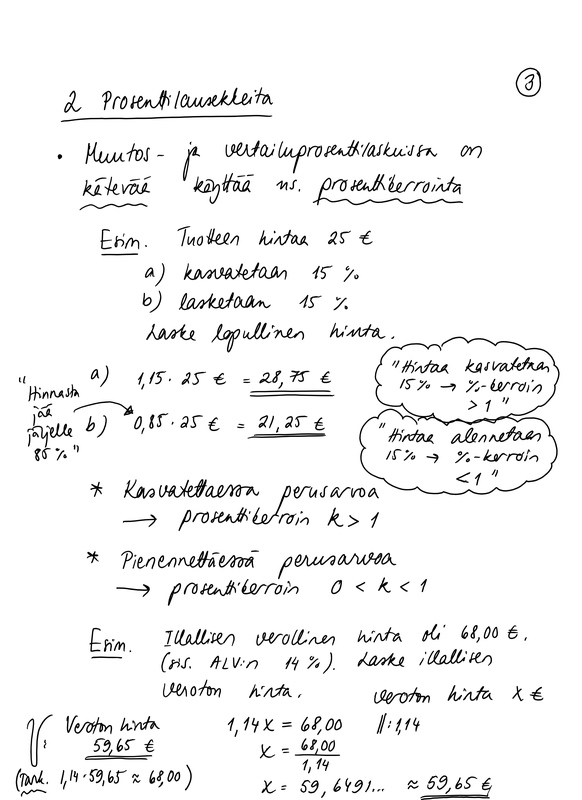 3
2 Prosenttilausekkeita
• Muutos- ja vertailuprosenttilaskuissa on
kätevää käyttää ns. prosenttikerrointa
Esim. Tuotteen hintaa 25 €
a) kasvatetaan 15 %
b) lasketaan 15 %
Laske lopullinen hinta.
a) 1,15 · 25 € = 28,75 €
"Hinnasta
jää
jäljelle
85 %"
b) 0,85 · 25 € = 21,25 €
"Hintaa kasvatetaan
15 % → %-kerroin
> 1"
"Hintaa alennetaan
15 % → %-kerroin
< 1"
* Kasvatettaessa perusarvoa
→ prosenttikerroin k > 1
* Pienennettäessä perusarvoa
→ prosenttikerroin 0 < k < 1
Esim. Illallisen verollinen hinta oli 68,00 €.
(sis. ALV:n 14 %). Laske illallisen
veroton hinta.
veroton hinta x €
1,14x = 68,00 ||:1,14
x = 68,00 / 1,14
x = 59,6491... ≈ 59,65 €
V: Veroton hinta
59,65 €
(Tark. 1,14·59,65 ≈ 68,00)